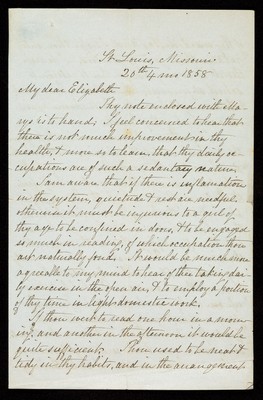 St. Louis, Missouri
20th 4 mo 1858
My dear Elizabeth
Thy note enclosed with Ma-
rys is to hand; I feel concerned to hear that
there is not much improvement in thy
health, & more so to learn, that thy daily oc-
cupations are of such a sedantary nature,
I am aware that if there is inflamation
in the system, quietude & rest are needful
otherwise it must be injurous to a girl of
thy age to be confined in doors, & to be engaged
so much in reading, of which occupation thou
art naturally fond. It would be much more
agreeable to my mind to hear of thee taking dai-
ly exercise in the open air, & to employ a portion
of thy time in light domestic work.
If thou wert to read one hour in a morn-
ing, and another in the afternoon it would be
quite sufficient. Thou used to be neat &
tidy in thy habits, and in the arrangement